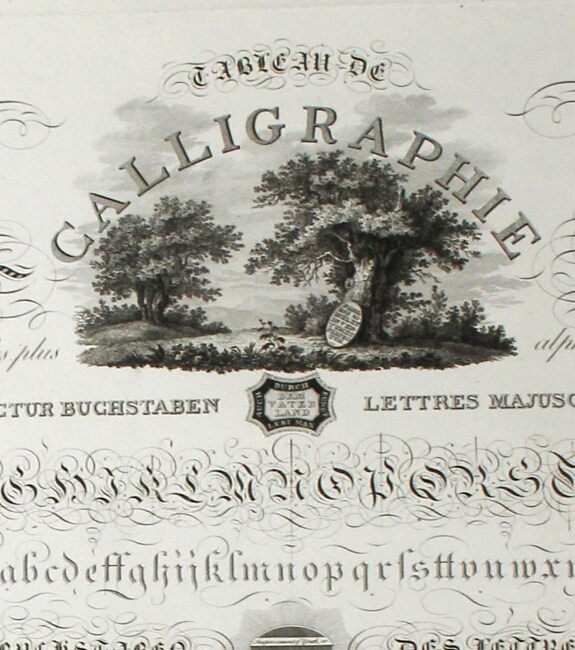 TABLEAU DE
CALLIGRAPHIE
s plus
alph
CTUR BUCHSTABEN
DURCH
AUCH
DEM
VATER
LAND
LEST MAN
LETTRES MAJUSC
GHIKLMNOPQRST
abcdeffghijklmnopqrſsttvuwx
BUCHSTABEN
DES LETTRE